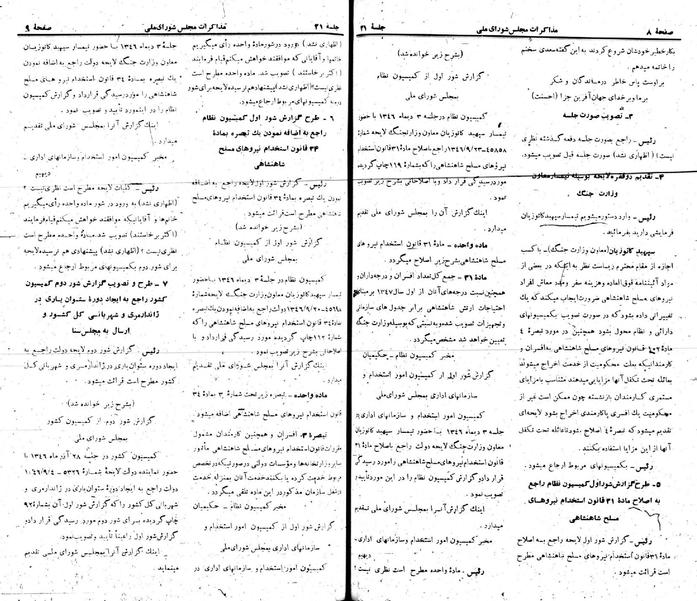 صفحهٔ ۸
مذاکرات مجلس شورای ملی
جلسهٔ ۳۱
بکار خطیر خودشان شروع کردند به این گفته سعدی سخنم
را خاتمه میدهم.
بر اوست پاس خاطر درمندگان و شکر
بر ما و بر خدای جهان آفرین جزا (احسنت)
۳- تصویب صورت جلسه
رئیس - راجع بصورت جلسه دفعه گذشته نظری
نیست؟ (اظهاری نشد) صورت جلسه قبل تصویب میشود.
۴- تقدیم دوفقره لایحه بوسیله تیمسار معاون
وزارت جنگ
رئیس - وارد دستور میشویم تیمسار سپهبد کاتوزیان
فرمایشی دارید بفرمائید.
سپهبد کاتوزیان (معاون وزارت جنگ) - با کسب
اجازه از مقام محترم ریاست نظر به اینکه در بعضی از
مواد آئیننامه فوق العاده و هزینه سفر ومدد معاش افراد
نیروهای مسلح شاهنشاهی ضرورت ایجاب میکند که یک
تغییراتی داده بشود که در صورت تصویب بکمیسیونهای
دارائی و نظام محول بشود همچنین در مورد تبصره ۴
قانون استخدام نیروهای مسلح شاهنشاهی به افسران و
کارمندانیکه بعلت محکومیت از خدمت اخراج میشوند
بعائله تحت تکفل آنها مزایایی میدهند متناسب با مزایای
مستمری کارمندان بازنشسته چون ممکن است غیر از
محکومیت یک افسری یا کارمندی اخراج بشود لایحه ای
تقدیم میشود که تبصرهٔ ۴ اصلاح شود تا عائله تحت تکفل
آنها از این مزایا استفاده بکنند.
رئیس - بکمیسیونهای مربوط ارجاع میشود.
۵- طرح گزارش شور اول کمیسیون نظام راجع
به اصلاح مادهٔ ۳۱ قانون استخدام نیروهای
مسلح شاهنشاهی
رئیس - گزارش شور اول لایحه راجع به اصلاح
مادهٔ ۳۱ قانون استخدام نیروهای مسلح شاهنشاهی مطرح
است قرائت میشود.
(بشرح زیر خوانده شد)
گزارش شور اول از کمیسیون نظام
بمجلس شورای ملی
کمیسیون نظام در جلسه ۳ دیماه ۱۳۴۶ با حضور
تیمسار سپهبد کاتوزیان معاون وزارت جنگ لایحه شمارهٔ
۴۵۸۵۸-۱۳۴۶/۹/۲۳ راجع به اصلاح مادهٔ ۳۱ قانون استخدام
نیروهای مسلح شاهنشاهی را که بشمارهٔ ۱۱۹ چاپ گردیده
مورد رسیدگی قرار داد و با اصلاحاتی بشرح زیر تصویب
نمود.
اینک گزارش آنرا بمجلس شورای ملی تقدیم
میدارد.
ماده واحده - مادهٔ ۳۱ قانون استخدام نیروهای
مسلح شاهنشاهی بشرح زیر اصلاح میشود:
مادهٔ ۳۱ - جمع کل تعداد افسران و درجه داران و
همچنین نسبت درجه های آنان از اول سال ۱۳۴۷ بر مبنای
احتیاجات ارتش شاهنشاهی برابر جدول های سازمانی
و تجهیزات تصویب شده و به نسبتی که بوسیله وزارت جنگ
تعیین خواهد شد مشخص میگردد.
مخبر کمیسیون نظام - حکیمیان
گزارش شور اول از کمیسیون امور استخدام و
سازمانهای اداری بمجلس شورای ملی
کمیسیون امور استخدام و سازمانهای اداری در
جلسه ۳ دیماه ۱۳۴۶ با حضور تیمسار سپهبد کاتوزیان
معاون وزارت جنگ لایحه دولت راجع به اصلاح مادهٔ ۳۱
قانون استخدام نیروهای مسلح شاهنشاهی را مورد رسیدگی
قرار داد و گزارش کمیسیون نظام را در این مورد تأیید و
تصویب نمود.
اینک گزارش آنرا بمجلس شورای ملی تقدیم
میدارد.
مخبر کمیسیون امور استخدام و سازمانهای اداری -
دیهیم
رئیس - مادهٔ واحده مطرح است نظری نیست؟
جلسهٔ ۳۱
مذاکرات مجلس شورای ملی
صفحهٔ ۹
(اظهاری نشد) ورود در شور ماده واحده رأی میگیریم
خانمها و آقایانی که موافقند خواهش میکنم قیام فرمایند
(اکثر برخاستند) تصویب شد. ماده واحده مطرح است
نظری نیست؟ (اظهاری نشد) پیشنهاد هم نرسیده لایحه برای
شور دوم بکمیسیونهای مربوط ارجاع میشود.
۶- طرح گزارش شور اول کمیسیون نظام
راجع به اضافه نمودن یک تبصره بمادهٔ
۳۴ قانون استخدام نیروهای مسلح
شاهنشاهی
رئیس - گزارش شور اول لایحه راجع به اضافه
نمودن یک تبصره بمادهٔ ۳۴ قانون استخدام نیروهای مسلح
شاهنشاهی مطرح است قرائت میشود.
(بشرح زیر خوانده شد)
گزارش شور اول از کمیسیون نظام
بمجلس شورای ملی
کمیسیون نظام در جلسه ۳ دیماه ۱۳۴۶ با حضور
تیمسار سپهبد کاتوزیان معاون وزارت جنگ لایحه شمارهٔ
۱۳۴۶/۹/۲۰ راجع به اضافه نمودن یک تبصره
بمادهٔ ۳۴ قانون استخدام نیروهای مسلح شاهنشاهی را که
بشمارهٔ ۱۱۲ چاپ گردیده مورد رسیدگی قرار داد و با
اصلاحاتی بشرح زیر تصویب نمود.
اینک گزارش آنرا بمجلس شورای ملی تقدیم
میدارد.
ماده واحده - تبصره زیر تحت شمارهٔ ۳ بمادهٔ ۳۴
قانون استخدام نیروهای مسلح شاهنشاهی اضافه میشود.
تبصرهٔ ۳- افسران و همچنین کارمندان مشمول
مقررات قانون استخدام نیروهای مسلح شاهنشاهی مأمور
سایر وزارتخانه ها و مؤسسات دولتی در صورتیکه در تخصص
مربوط خدمت کرده یا بکنند خدمت آنان بمنزله خدمت
در شغل سازمان مذکور در این ماده تلقی میگردد.
مخبر کمیسیون نظام - حکیمیان
گزارش شور اول از کمیسیون امور استخدام و
سازمانهای اداری بمجلس شورای ملی
کمیسیون امور استخدام و سازمانهای اداری در
جلسه ۳ دیماه ۱۳۴۶ با حضور تیمسار سپهبد کاتوزیان
معاون وزارت جنگ لایحه دولت راجع به اضافه نمودن
یک تبصره بمادهٔ ۳۴ قانون استخدام نیروهای مسلح
شاهنشاهی را مورد رسیدگی قرار داد و گزارش کمیسیون
نظام را در این مورد تأیید و تصویب نمود.
اینک گزارش آنرا بمجلس شورای ملی تقدیم
میدارد.
مخبر کمیسیون امور استخدام و سازمانهای اداری -
دیهیم
رئیس - کلیات لایحه مطرح است نظری نیست؟
(اظهاری نشد) به ورود در شور ماده واحده رأی میگیریم
خانمها و آقایانیکه موافقند خواهش میکنم قیام فرمایند
(اکثر برخاستند) تصویب شد. ماده واحده مطرح است
نظری نیست؟ (اظهاری نشد) پیشنهادی هم نرسیده لایحه
برای شور دوم بکمیسیونهای مربوط ارجاع میشود.
۷- طرح و تصویب گزارش شور دوم کمیسیون
کشور راجع به ایجاد دورهٔ ستوان یاری در
ژاندارمری و شهربانی کل کشور و
ارسال به مجلس سنا
رئیس - گزارش شور دوم لایحه دولت راجع به
ایجاد دوره ستوان یاری در ژاندارمری و شهربانی کل
کشور مطرح است قرائت میشود.
(بشرح زیر خوانده شد)
گزارش شور دوم از کمیسیون کشور
بمجلس شورای ملی
کمیسیون کشور در جلسه ۲۸ آذر ماه ۱۳۴۶ با
حضور نماینده دولت لایحه شمارهٔ ۵۳۲۶ - ۱۰۴۶/۹/۴
دولت راجع به ایجاد دوره ستوان یاری در ژاندارمری و
شهربانی کل کشور را که گزارش شور اول آن بشمارهٔ ۹۷
چاپ گردیده برای شور دوم مورد رسیدگی قرار داد و
گزارش شور اول را عیناً تأیید و تصویب نمود.
اینک گزارش آنرا بمجلس شورای ملی تقدیم
مینماید.